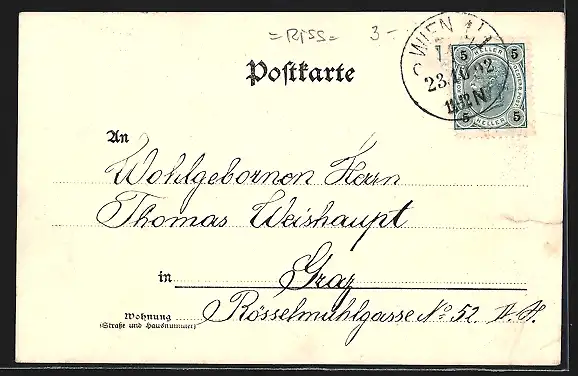 = RISS = 3.-
Postkarte
WIEN
23.10.02
11.12N
5 HELLER 5
5 HELLER 5
An
Wohlgebornen Herrn
Thomas Weishaupt
in Graz
Wohnung
(Straße und Hausnummer)
Rösselmühlgasse No. 52. II. St.